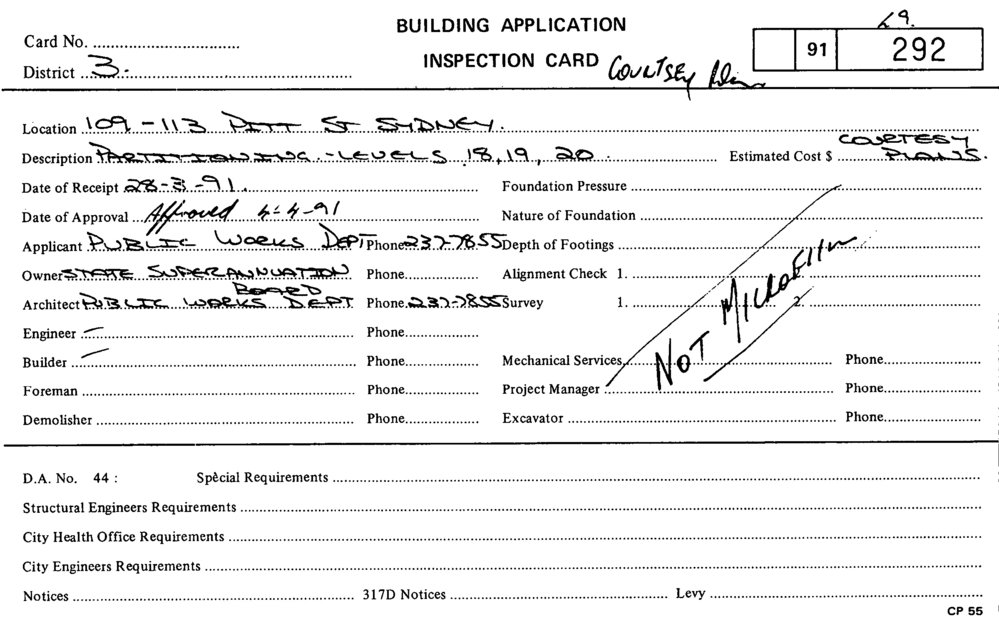 BUILDING APPLICATION 29.
Card No. INSPECTION CARD COURTSEY 91 292
District 3.
Location 109-113 PITT ST SYDNEY.
Description PARTITIONING - LEVELS 18,19,20. Estimated Cost $ COURTESY PLANS.
Date of Receipt 28-3-91. Foundation Pressure
Date of Approval Approved 4-4-91 Nature of Foundation
Applicant PUBLIC WORKS DEPT Phone 237-7855 Depth of Footings
Owner STATE SUPERANNUATION BOARD Phone Alignment Check 1.
Architect PUBLIC WORKS DEPT Phone 237-7855 Survey 1. 2.
Engineer — Phone NOT MICROFILM
Builder — Phone Mechanical Services Phone
Foreman Phone Project Manager Phone
Demolisher Phone Excavator Phone
D.A. No. 44 : Spècial Requirements
Structural Engineers Requirements
City Health Office Requirements
City Engineers Requirements
Notices 317D Notices Levy
CP 55